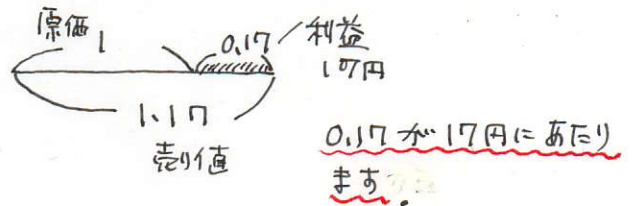 原価 1
0.17 利益
17円
1.17
売り値
0.17が17円にあたり
ます.